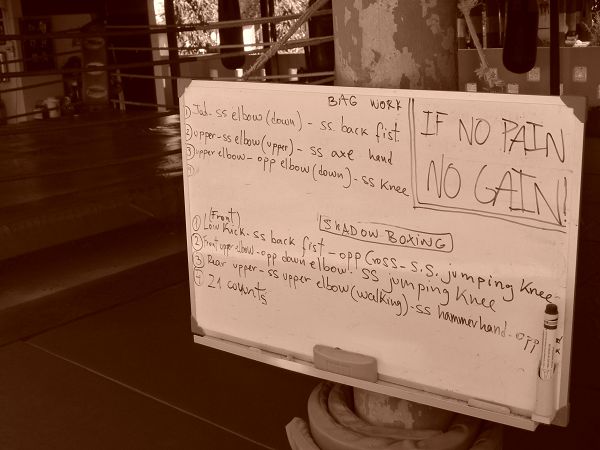 BAG WORK
① Jab - ss elbow (down) - ss. back fist.
② upper - ss elbow (upper) - ss axe hand
③ upper elbow - opp elbow (down) - ss knee
④
IF NO PAIN
NO GAIN!
SHADOW BOXING
(Front)
① Low Kick - ss back fist - opp Cross - S.S. jumping Knee -
② Front upper elbow - opp down elbow - SS jumping Knee
③ Rear upper - ss upper elbow (walking) - ss hammerhand - opp
④ 21 counts